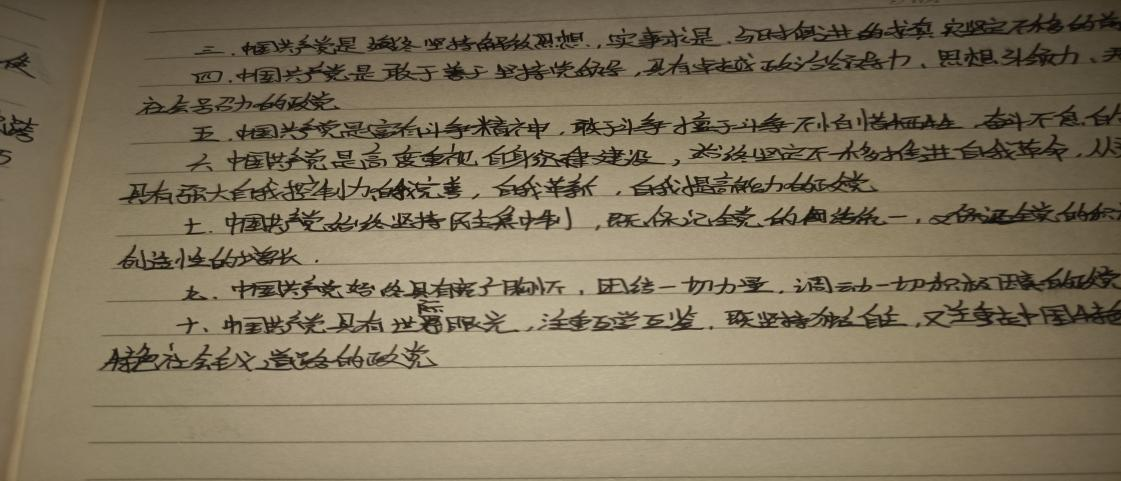 三.中国共产党是始终坚持解放思想,实事求是,与时俱进的求真 实坚定不移的
四.中国共产党是敢于善于坚持党领导,具有卓越政治领导力、思想引领力、
社会号召力的政党
五.中国共产党是富有斗争精神,敢于斗争擅于斗争不怕 奋斗不息
六 中国共产党是高度重视自身 建设,始终坚定不移推进自我革命,从
具有强大自我控制力自我完善,自我革新,自我提高能力的政党
七.中国共产党始终坚持民主集中制,既保证全党的团结统一,又保证全党的
创造性的增长.
九.中国共产党始终具有 胸怀,团结一切力量,调动一切积极因素的政党
十、中国共产党具有世界眼光,注重互学互鉴,既坚持独立自主,又 中国特色
特色社会主义道路的政党